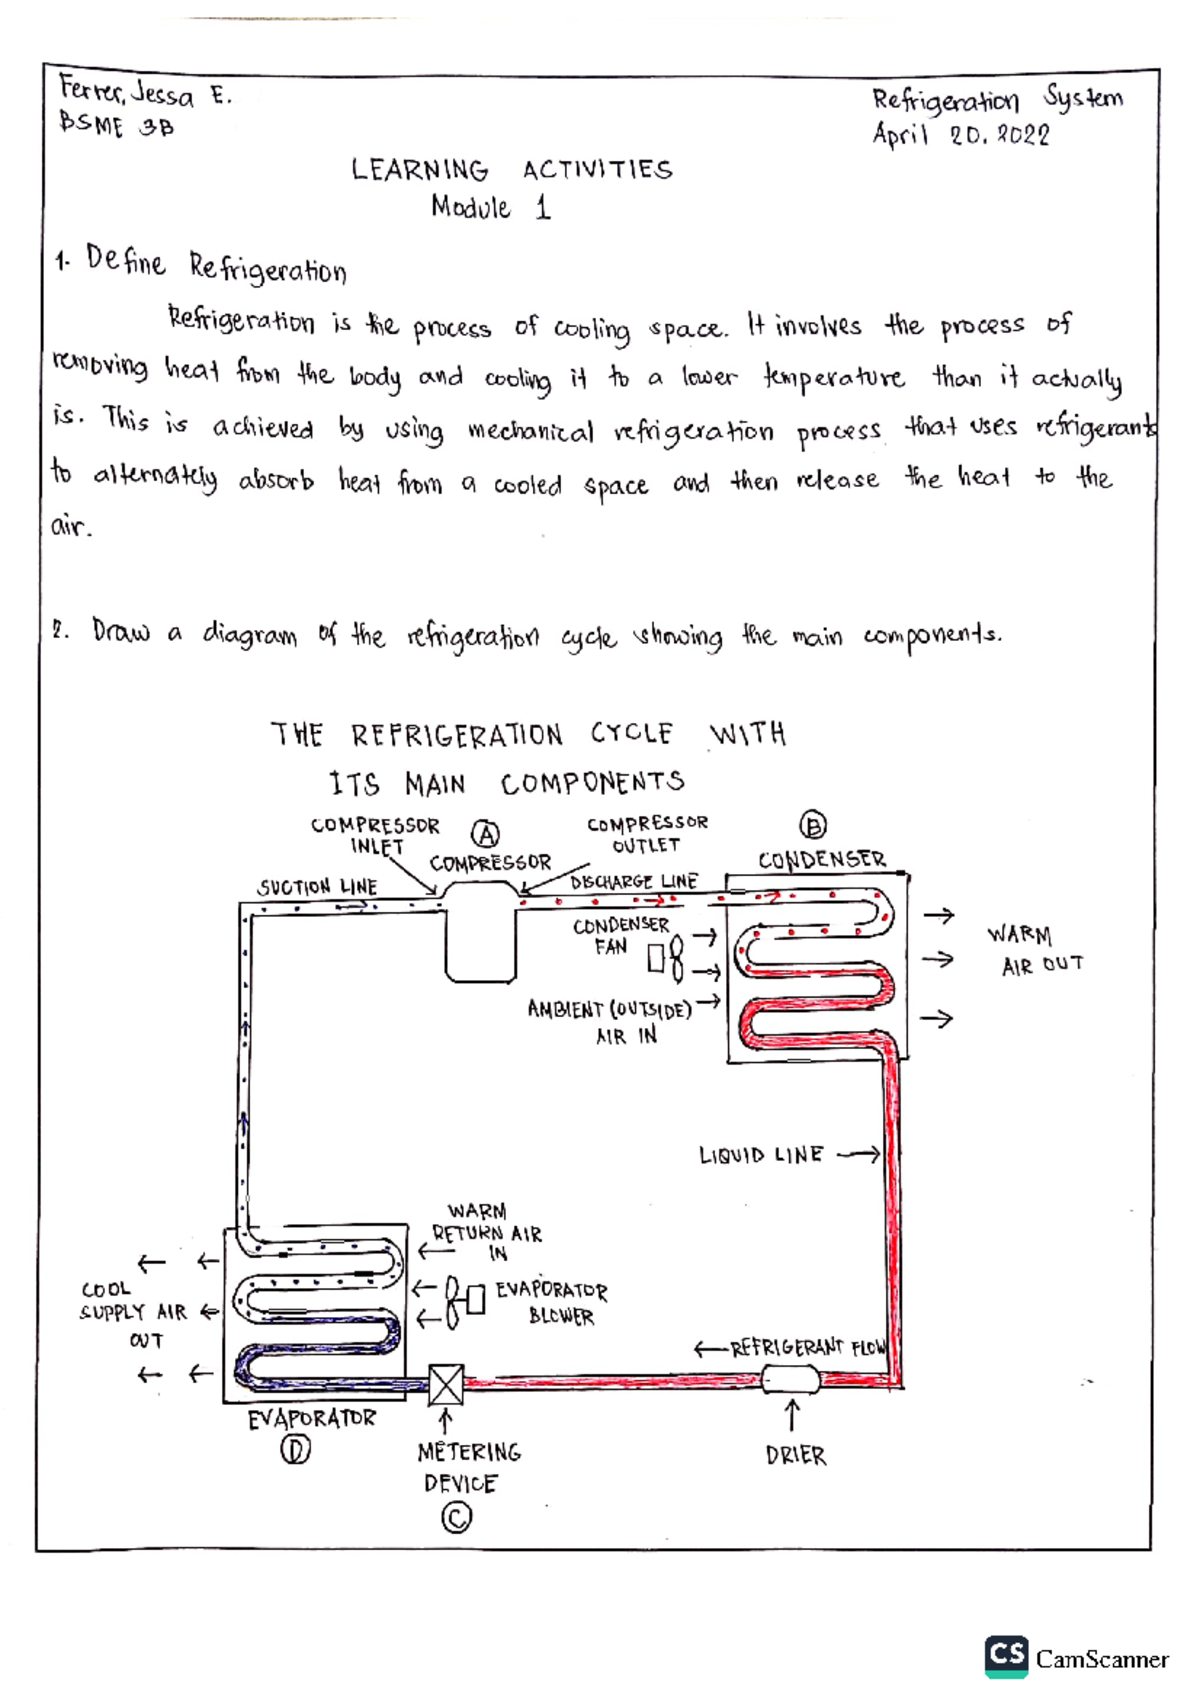 Ferrer, Jessa E.
BSME 3B
Refrigeration System
April 20, 2022
LEARNING ACTIVITIES
Module 1
1. Define Refrigeration
Refrigeration is the process of cooling space. It involves the process of
removing heat from the body and cooling it to a lower temperature than it actually
is. This is achieved by using mechanical refrigeration process that uses refrigerants
to alternately absorb heat from a cooled space and then release the heat to the
air.
2. Draw a diagram of the refrigeration cycle showing the main components.
THE REFRIGERATION CYCLE WITH
ITS MAIN COMPONENTS
COMPRESSOR
INLET
A
COMPRESSOR
COMPRESSOR
OUTLET
B
CONDENSER
SUCTION LINE
DISCHARGE LINE
CONDENSER
FAN
WARM
AIR OUT
AMBIENT (OUTSIDE)
AIR IN
LIQUID LINE
WARM
RETURN AIR
IN
COOL
SUPPLY AIR
OUT
EVAPORATOR
BLOWER
REFRIGERANT FLOW
EVAPORATOR
D
METERING
DEVICE
C
DRIER
CS CamScanner